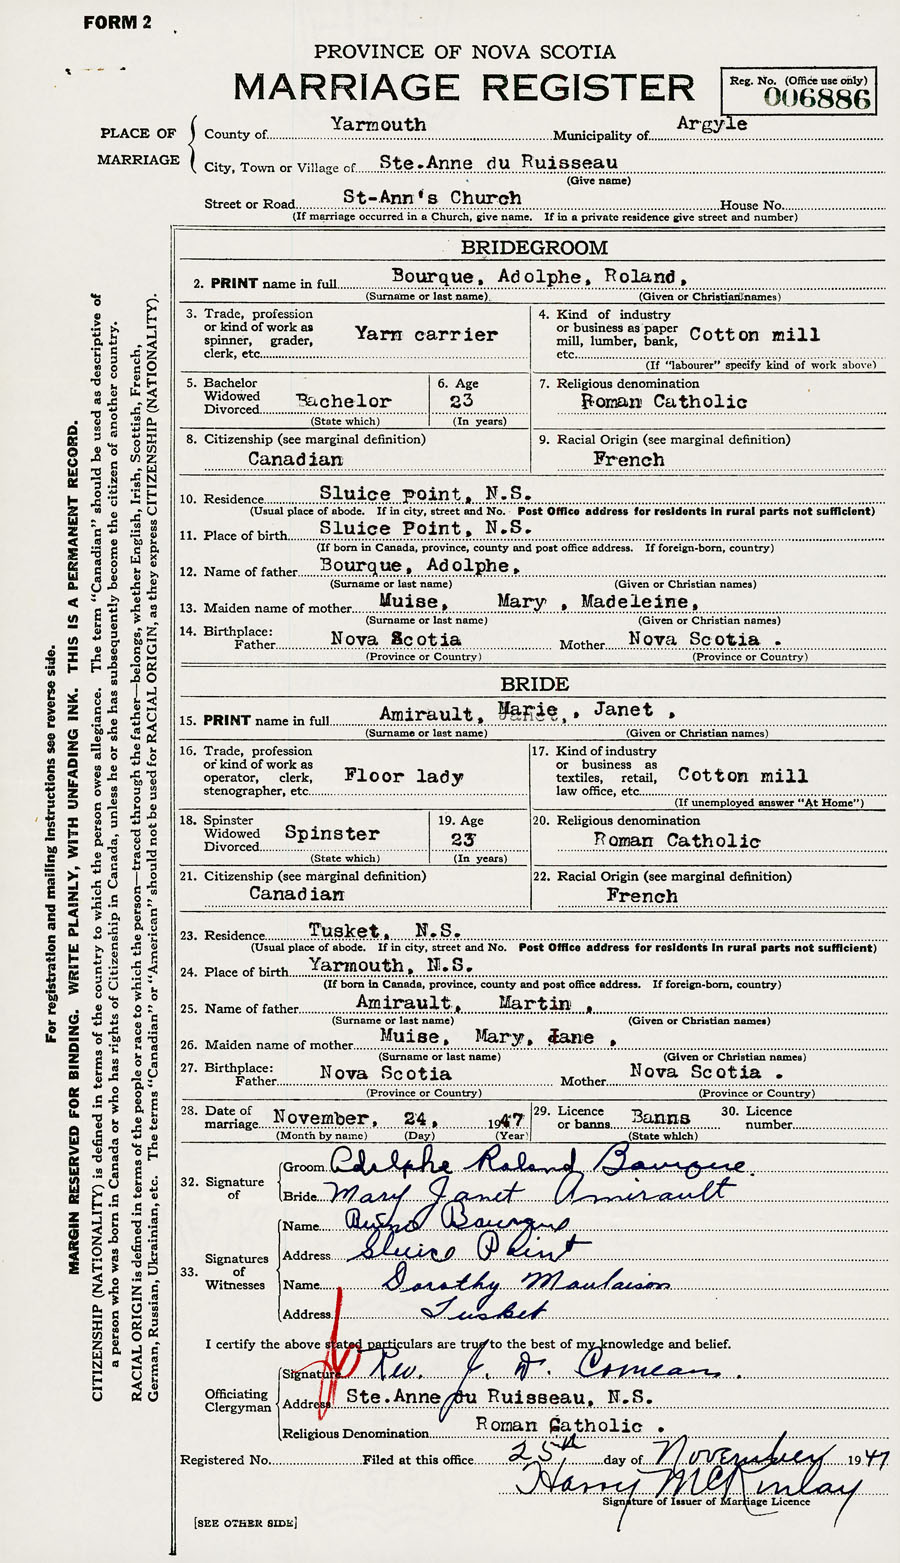 FORM 2
PROVINCE OF NOVA SCOTIA
MARRIAGE REGISTER
Reg. No. (Office use only)
006886
PLACE OF MARRIAGE
County of Yarmouth Municipality of Argyle
City, Town or Village of Ste.Anne du Ruisseau
(Give name)
Street or Road St-Ann's Church House No.
(If marriage occurred in a Church, give name. If in a private residence give street and number)
BRIDEGROOM
2. PRINT name in full Bourque, Adolphe, Roland,
(Surname or last name) (Given or Christian names)
3. Trade, profession or kind of work as spinner, grader, clerk, etc. Yarn carrier
4. Kind of industry or business as paper mill, lumber, bank, etc. Cotton mill
(If "labourer" specify kind of work above)
5. Bachelor Widowed Divorced Bachelor
(State which)
6. Age 23
(In years)
7. Religious denomination
Roman Catholic
8. Citizenship (see marginal definition)
Canadian
9. Racial Origin (see marginal definition)
French
10. Residence Sluice point, N.S.
(Usual place of abode. If in city, street and No. Post Office address for residents in rural parts not sufficient)
11. Place of birth Sluice Point, N.S.
(If born in Canada, province, county and post office address. If foreign-born, country)
12. Name of father Bourque, Adolphe,
(Surname or last name) (Given or Christian names)
13. Maiden name of mother Muise, Mary , Madeleine,
(Surname or last name) (Given or Christian names)
14. Birthplace: Father Nova Scotia Mother Nova Scotia .
(Province or Country) (Province or Country)
BRIDE
15. PRINT name in full Amirault, Marie, Janet ,
(Surname or last name) (Given or Christian names)
16. Trade, profession or kind of work as operator, clerk, stenographer, etc. Floor lady
17. Kind of industry or business as textiles, retail, law office, etc. Cotton mill
(If unemployed answer "At Home")
18. Spinster Widowed Divorced Spinster
(State which)
19. Age 23
(In years)
20. Religious denomination
Roman Catholic
21. Citizenship (see marginal definition)
Canadian
22. Racial Origin (see marginal definition)
French
23. Residence Tusket, N.S.
(Usual place of abode. If in city, street and No. Post Office address for residents in rural parts not sufficient)
24. Place of birth Yarmouth, N.S.
(If born in Canada, province, county and post office address. If foreign-born, country)
25. Name of father Amirault, Martin ,
(Surname or last name) (Given or Christian names)
26. Maiden name of mother Muise, Mary, Jane ,
(Surname or last name) (Given or Christian names)
27. Birthplace: Father Nova Scotia Mother Nova Scotia .
(Province or Country) (Province or Country)
28. Date of marriage November, 24, 1947
(Month by name) (Day) (Year)
29. Licence or banns Banns
(State which)
30. Licence number
32. Signature of
Groom Adolphe Roland Bourque
Bride Mary Janet Amirault
33. Signatures of Witnesses
Name Bourque
Address Sluice Point
Name Dorothy Moulaison
Address Tusket
I certify the above stated particulars are true to the best of my knowledge and belief.
Officiating Clergyman
Signature Rev. J. D. Comeau .
Address Ste.Anne du Ruisseau, N.S.
Religious Denomination Roman Catholic .
Registered No. Filed at this office 25th day of November 1947
Harry McKinlay
Signature of Issuer of Marriage Licence
[SEE OTHER SIDE]
For registration and mailing instructions see reverse side.
MARGIN RESERVED FOR BINDING. WRITE PLAINLY, WITH UNFADING INK. THIS IS A PERMANENT RECORD.
CITIZENSHIP (NATIONALITY) is defined in terms of the country to which the person owes allegiance. The term "Canadian" should be used as descriptive of
a person who was born in Canada or who has rights of Citizenship in Canada, unless he or she has subsequently become the citizen of another country.
RACIAL ORIGIN is defined in terms of the people or race to which the person—traced through the father—belongs, whether English, Irish, Scottish, French,
German, Russian, Ukrainian, etc. The terms "Canadian" or "American" should not be used for RACIAL ORIGIN, as they express CITIZENSHIP (NATIONALITY).